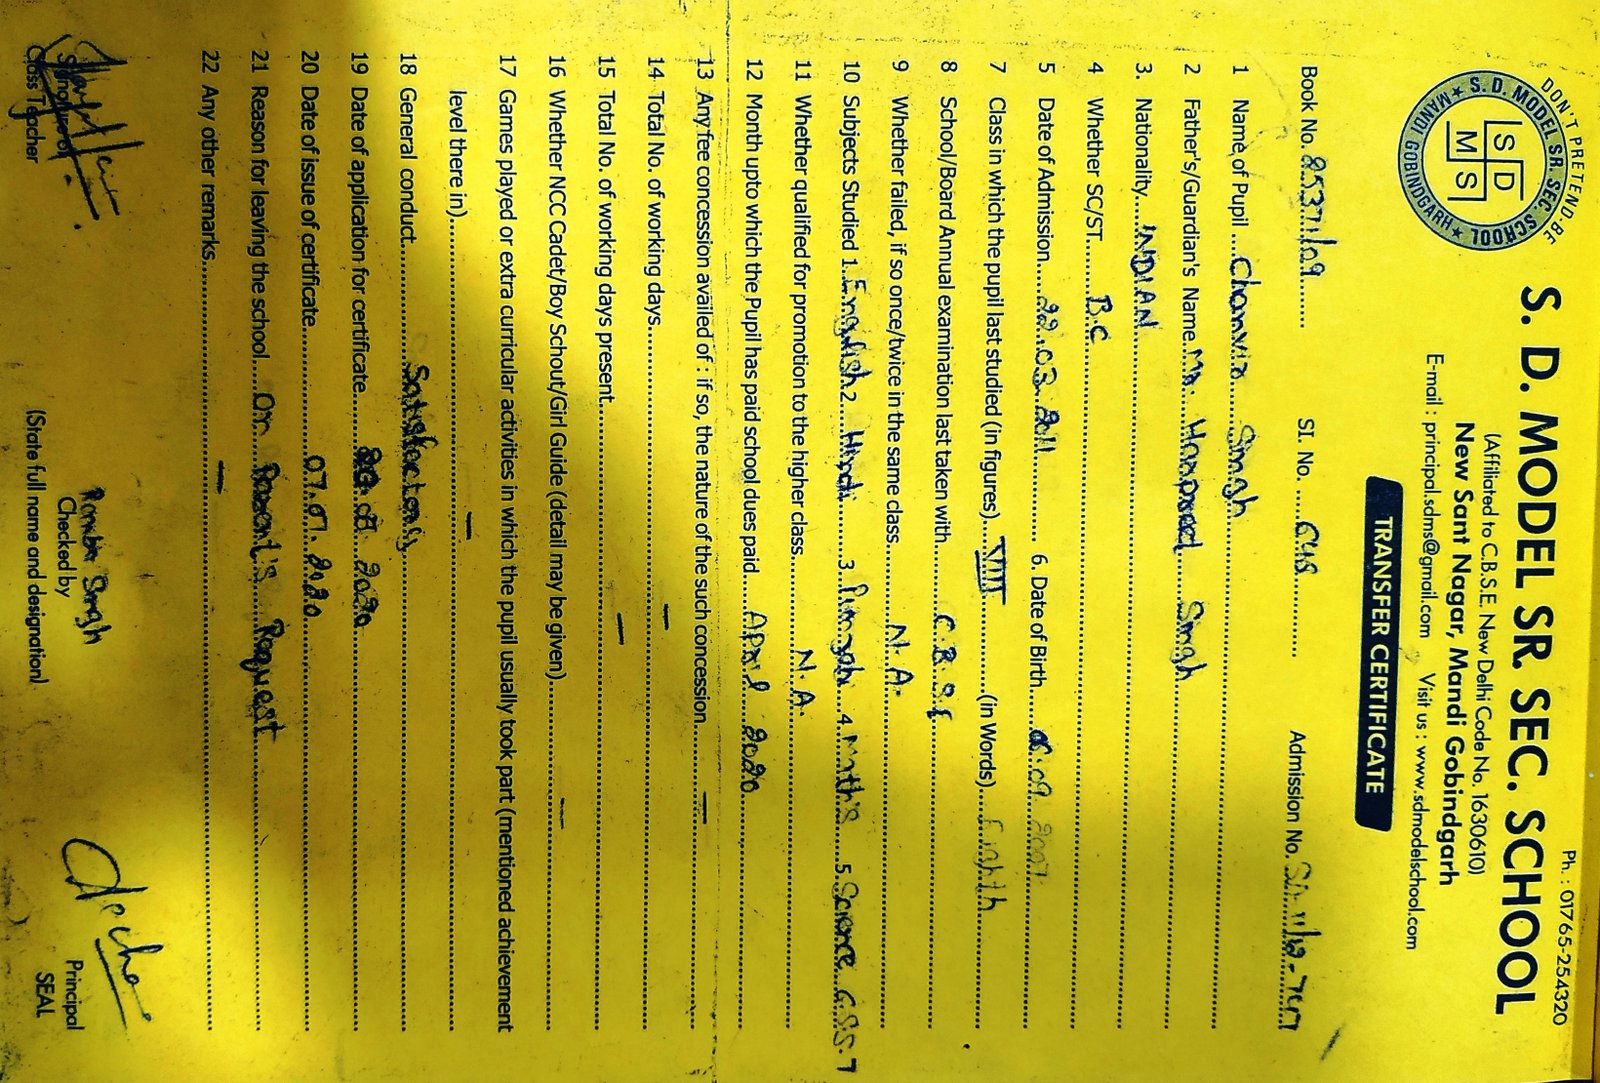 DON'T PRETEND, BE
S. D. MODEL SR. SEC. SCHOOL
MANDI GOBINDGARH
S D
M S
Ph. : 01765-254320
S. D. MODEL SR. SEC. SCHOOL
(Affiliated to C.B.S.E. New Delhi Code No. 1630610)
New Sant Nagar, Mandi Gobindgarh
E-mail : principal.sdms@gmail.com Visit us : www.sdmodelschool.com
TRANSFER CERTIFICATE
Book No. SI. No. Admission No.
1 Name of Pupil Singh
2 Father's/Guardian's Name Mr. Singh
3. Nationality INDIAN
4 Whether SC/ST B.C
5 Date of Admission 22.03.2011 6. Date of Birth
7 Class in which the pupil last studied (in figures) VIII (in Words) Eighth
8 School/Board Annual examination last taken with C.B.S.E
9 Whether failed, if so once/twice in the same class N.A.
10 Subjects Studied 1. English 2. Hindi 3. Punjabi 4. Math's 5. Science, G.S.S.T
11 Whether qualified for promotion to the higher class. N.A.
12 Month upto which the Pupil has paid school dues paid April 2020
13 Any fee concession availed of : if so, the nature of the such concession –
14 Total No. of working days –
15 Total No. of working days present –
16 Whether NCC Cadet/Boy Schout/Girl Guide (detail may be given) –
17 Games played or extra curricular activities in which the pupil usually took part (mentioned achievement
level there in) –
18 General conduct Satisfactory
19 Date of application for certificate 2020
20 Date of issue of certificate 07.07.2020
21 Reason for leaving the school On Parent's Request
22 Any other remarks –
Signature of
Class Teacher
Singh
Checked by
(State full name and designation)
Principal
SEAL